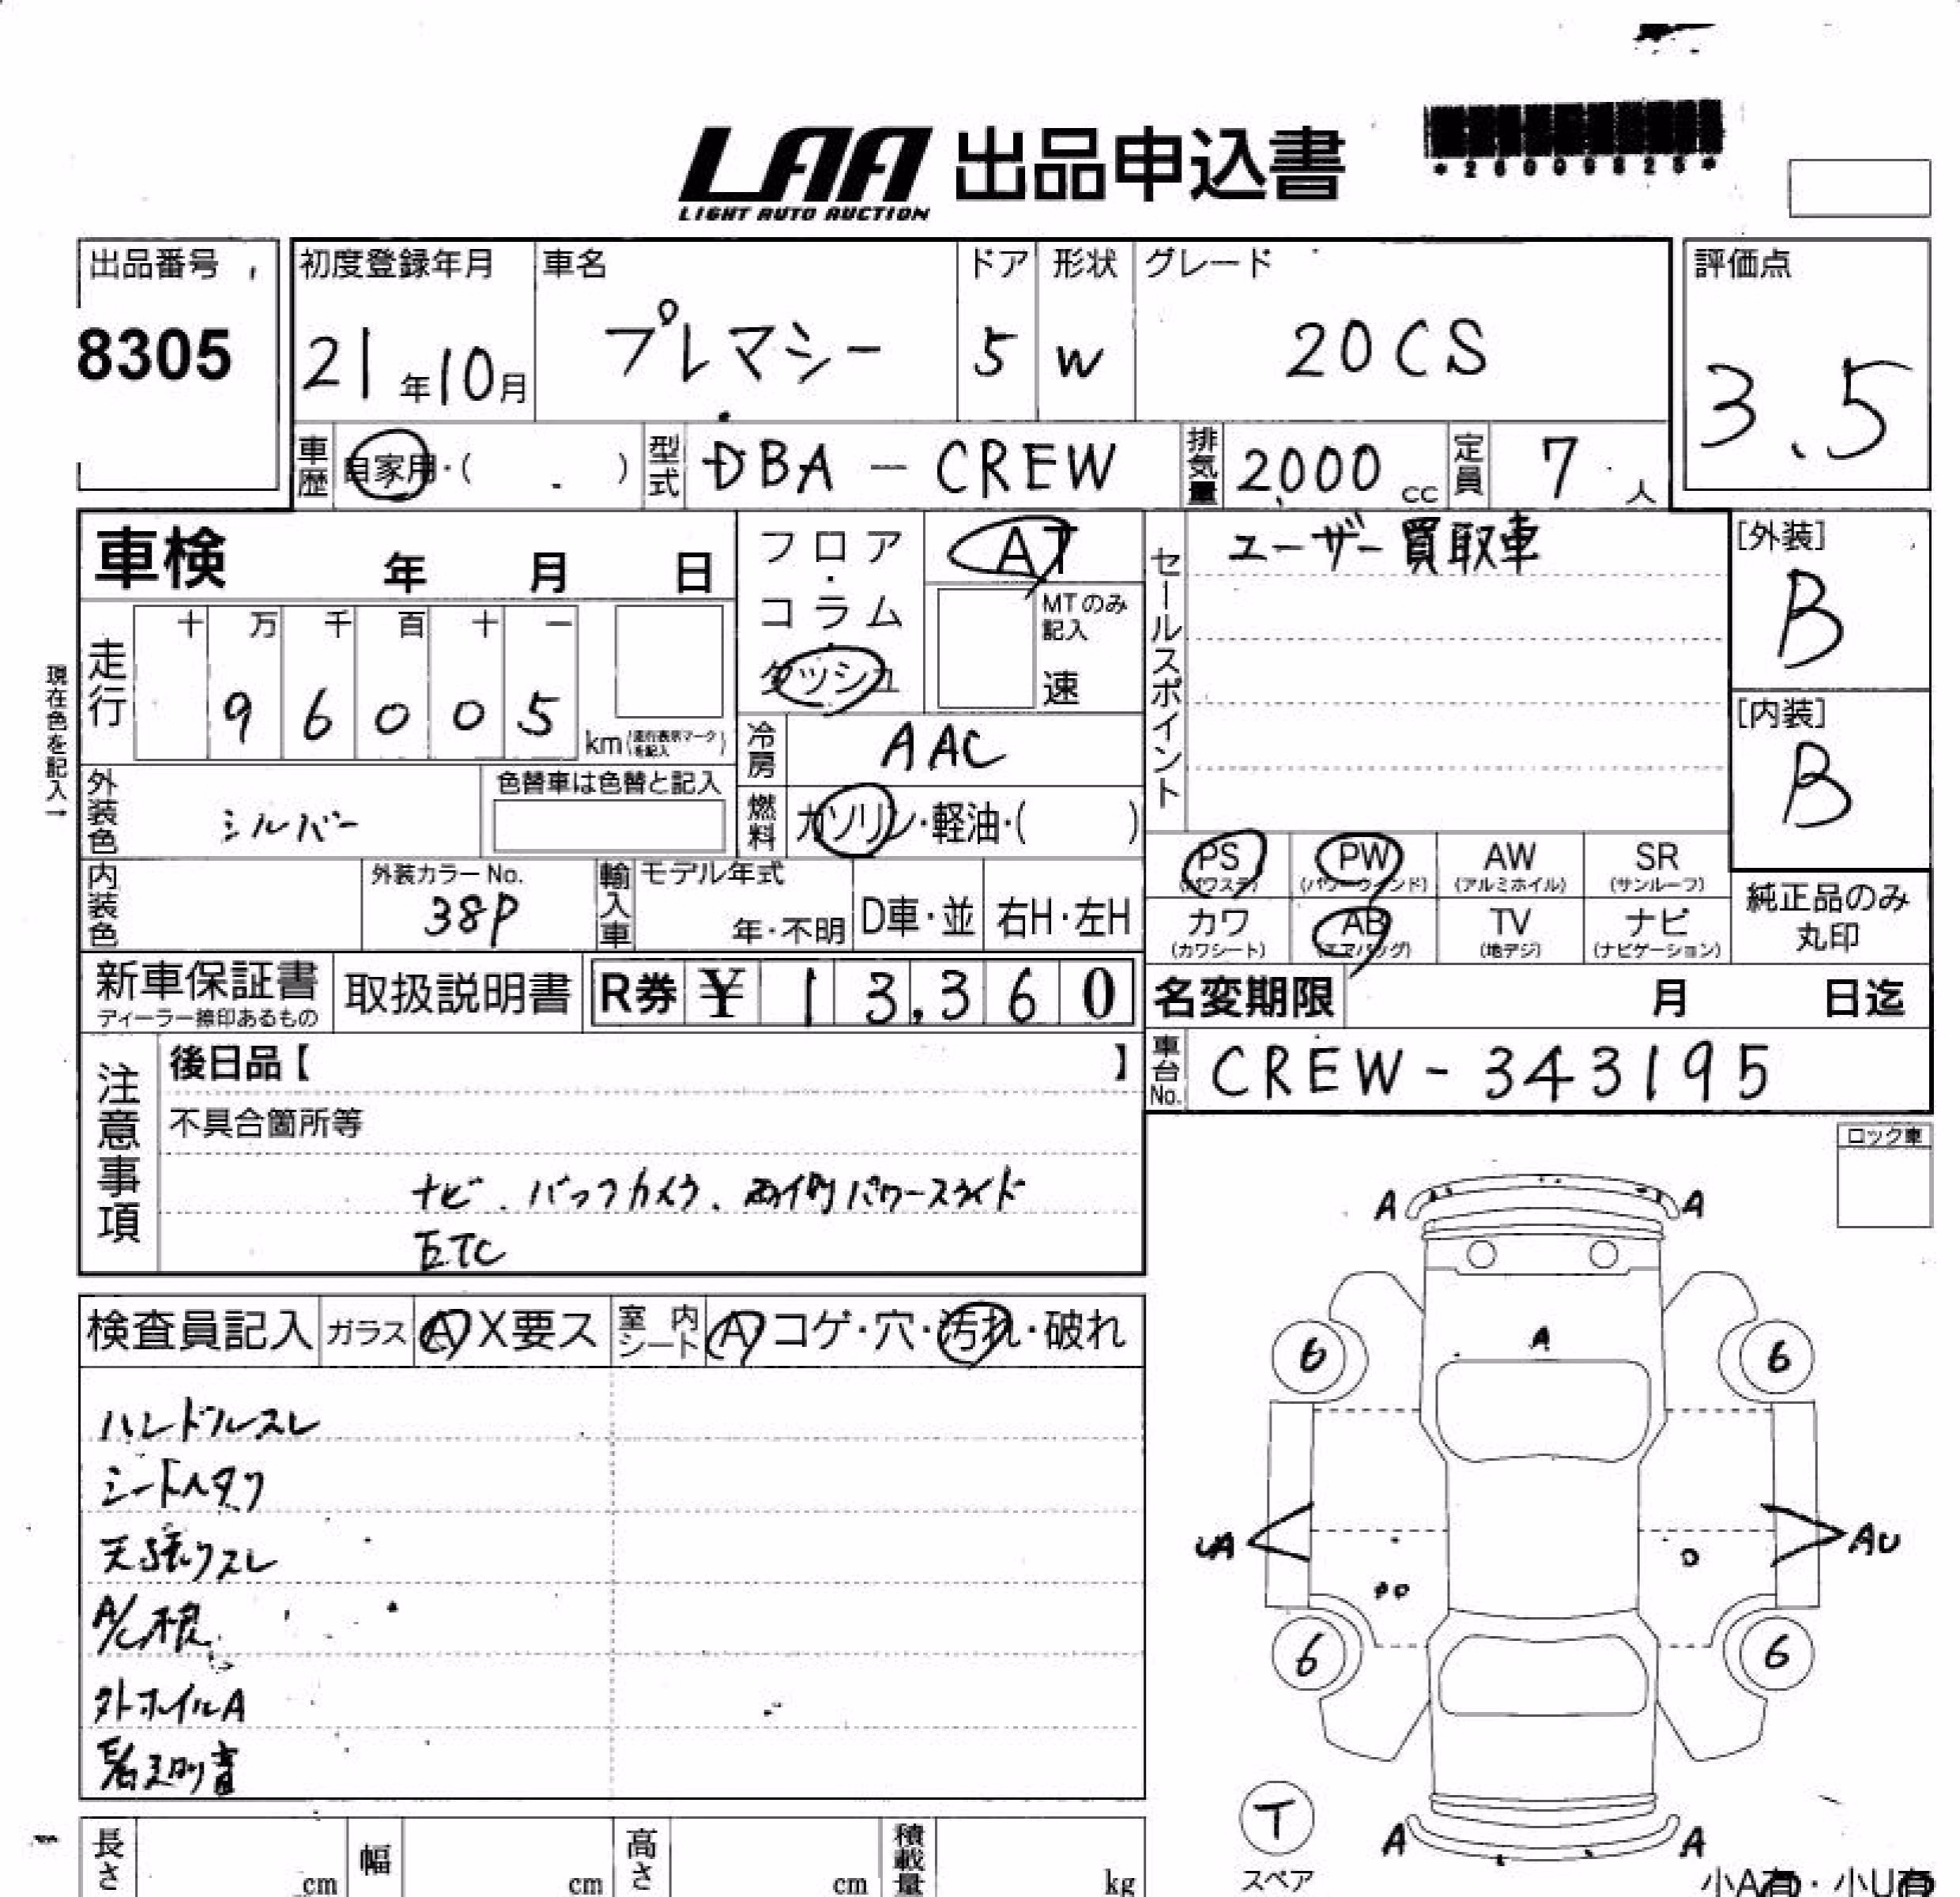 LAA 出品申込書
LIGHT AUTO AUCTION
*26009828*
出品番号
8305
初度登録年月
21年10月
車名
プレマシー
ドア
5
形状
W
グレード
20CS
評価点
3.5
車歴
自家用・( )
型式
DBA-CREW
排気量
2,000 cc
定員
7 人
車検 年 月 日
フロア・コラム・ダッシュ
AT
MTのみ記入
速
セールスポイント
ユーザー買取車
[外装]
B
[内装]
B
現在色を記入→
走行
十 万 千 百 十 一
9 6 0 0 5
km(走行表示マークを記入)
冷房
AAC
燃料
ガソリン・軽油・( )
外装色
シルバー
色替車は色替と記入
内装色
外装カラーNo.
38P
輸入車
モデル年式
年・不明
D車・並
右H・左H
PS (パワステ)
PW (パワーウインド)
AW (アルミホイル)
SR (サンルーフ)
カワ (カワシート)
AB (エアバッグ)
TV (地デジ)
ナビ (ナビゲーション)
純正品のみ丸印
新車保証書
ディーラー捺印あるもの
取扱説明書
R券 ¥ 13,360
名変期限 月 日迄
車台No.
CREW-343195
注意事項
後日品【 】
不具合箇所等
ナビ.バックカメラ.両側パワースライド
ETC
ロック車
検査員記入
ガラス
A X要ス
室内シート
A コゲ・穴・汚れ・破れ
ハンドルスレ
シートヘタリ
天張リスレ
外ホイルA
A A
A
6 6
UA AU
6 6
T
スペア
A A
長さ cm
幅 cm
高さ cm
積載量 kg
小A有・小U有